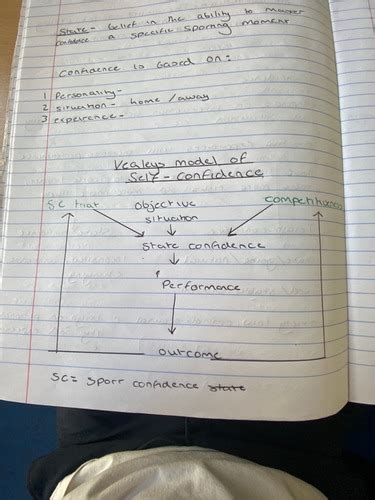 State - belief in the ability to master
confidence a specific sporting moment
Confidence is based on:
1 Personality -
2 situation - home / away
3 experance -
Vealeys model of
Self - Confidence
SC trait objective
situation
State confidence
Performance
outcome
SC = Sport confidence state